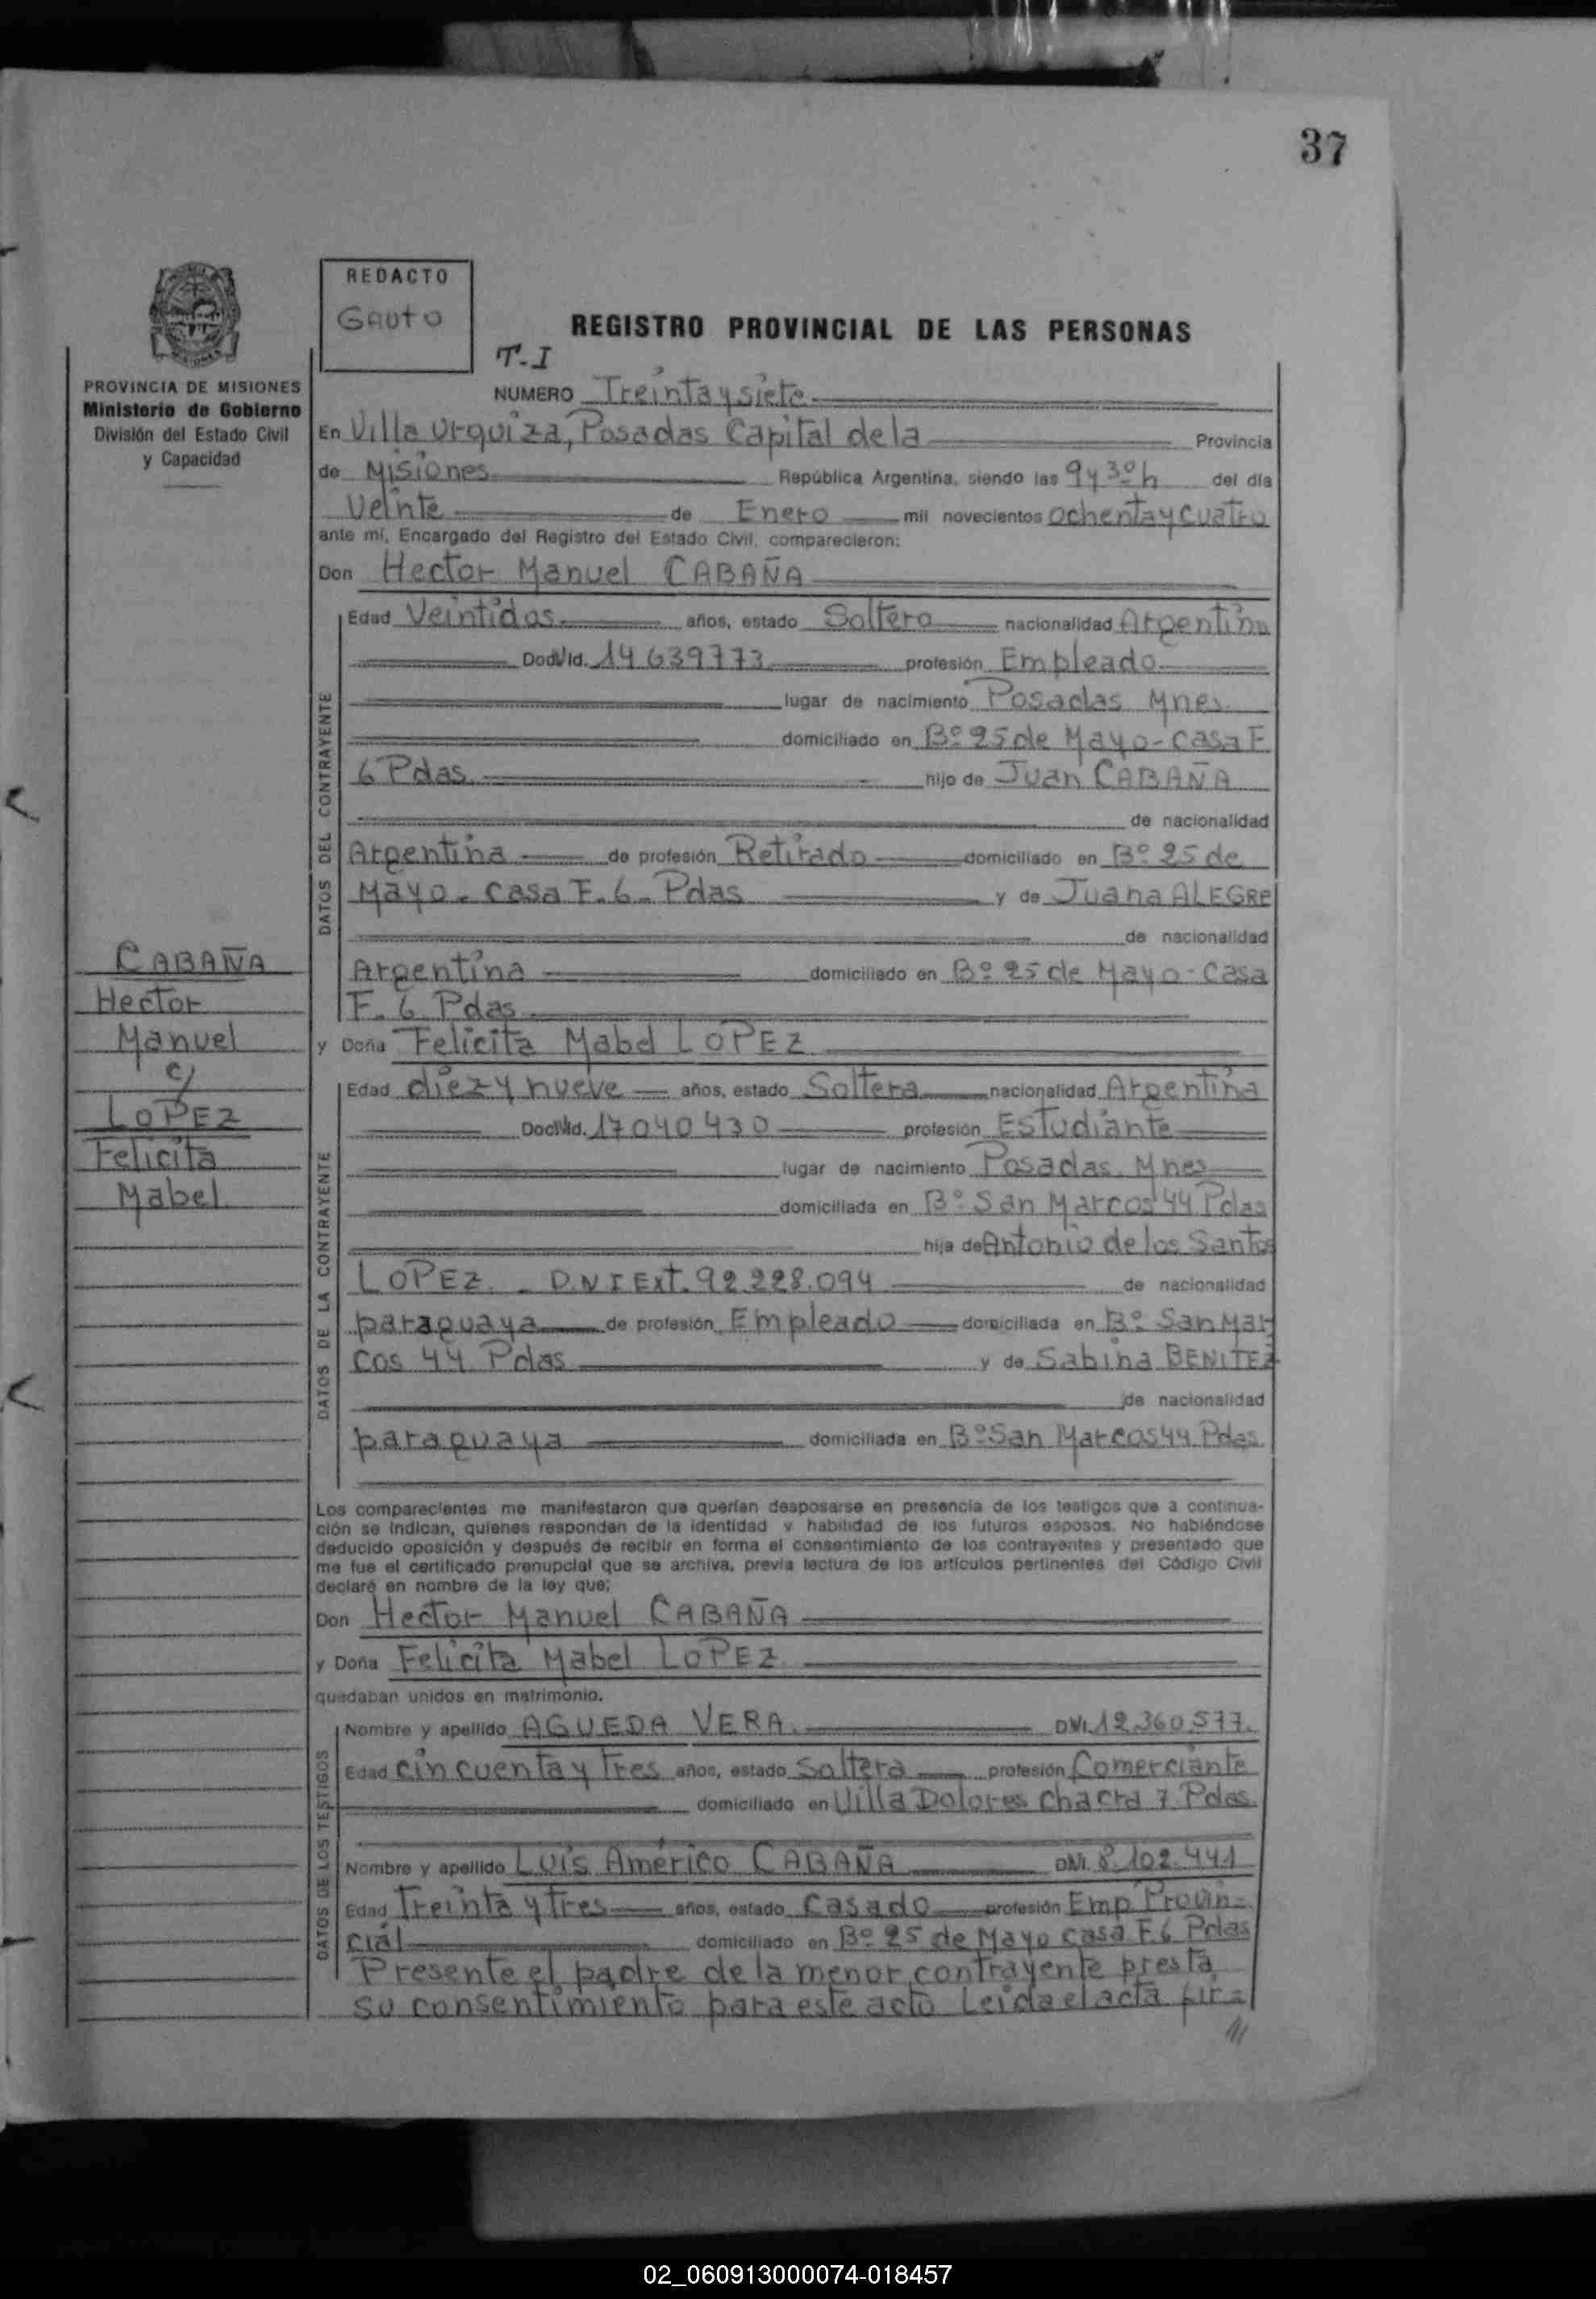 37
REDACTO
GAUTO
REGISTRO PROVINCIAL DE LAS PERSONAS
T-I
PROVINCIA DE MISIONES
Ministerio de Gobierno
División del Estado Civil
y Capacidad
NUMERO Treinta y siete
En Villa Urquiza, Posadas Capital de la Provincia
de Misiones República Argentina, siendo las 9 y 30 h del día
Veinte de Enero mil novecientos ochenta y cuatro
ante mi, Encargado del Registro del Estado Civil, comparecieron:
Don Hector Manuel CABAÑA
DATOS DEL CONTRAYENTE
Edad Veintidos años, estado Soltero nacionalidad Argentina
Doc. Id. 14.639773 profesión Empleado
lugar de nacimiento Posadas Mnes
domiciliado en Bº 25 de Mayo - casa F
6 Pdas hijo de Juan CABAÑA
de nacionalidad
Argentina de profesión Retirado domiciliado en Bº 25 de
Mayo - casa F. 6 - Pdas y de Juana ALEGRE
de nacionalidad
Argentina domiciliado en Bº 25 de Mayo - Casa
F. 6 Pdas
y Doña Felicita Mabel LOPEZ
CABAÑA
Hector
Manuel
c/
LOPEZ
Felicita
Mabel
DATOS DE LA CONTRAYENTE
Edad diez y nueve años, estado Soltera nacionalidad Argentina
Doc. Id. 17040430 profesión Estudiante
lugar de nacimiento Posadas. Mnes
domiciliada en Bº San Marcos 44 Pdas
hija de Antonio de los Santos
LOPEZ. - D.N.I Ext. 92.228.094 de nacionalidad
paraguaya de profesión Empleado domiciliada en Bº San Mar
cos 44 Pdas y de Sabina BENITEZ
de nacionalidad
paraguaya domiciliada en Bº San Marcos 44 Pdas
Los comparecientes me manifestaron que querían desposarse en presencia de los testigos que a continua-
ción se indican, quienes responden de la identidad y habilidad de los futuros esposos. No habiéndose
deducido oposición y después de recibir en forma el consentimiento de los contrayentes y presentado que
me fue el certificado prenupcial que se archiva, previa lectura de los artículos pertinentes del Código Civil
declaré en nombre de la ley que:
Don Hector Manuel CABAÑA
y Doña Felicita Mabel LOPEZ
quedaban unidos en matrimonio.
DATOS DE LOS TESTIGOS
Nombre y apellido AGUEDA VERA DNI. 12.360.577
Edad cincuenta y tres años, estado Soltera profesión Comerciante
domiciliado en Villa Dolores chacra 7 Pdas
Nombre y apellido Luis Américo CABAÑA DNI. 8.102.441
Edad treinta y tres años, estado Casado profesión Emp Provin-
cial domiciliado en Bº 25 de Mayo casa F.6 Pdas
Presente el padre de la menor contrayente presta
su consentimiento para este acto Leida el acta fir=
02_060913000074-018457